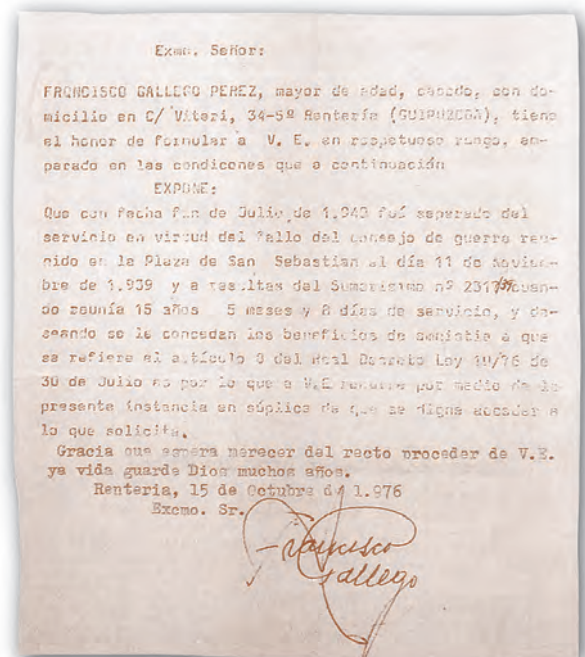 Exmo. Señor:
FRANCISCO GALLEGO PEREZ, mayor de edad, casado, con do-
micilio en C/ Viteri, 34-5º Rentería (GUIPUZCOA), tiene
el honor de formular a V. E. en respetuoso ruego, am-
parado en las condicones que a continuación
EXPONE:
Que con fecha fin de Julio de 1.940 fué separado del
servicio en virtud del fallo del consejo de guerra reu-
nido en la Plaza de San Sebastian el día 11 de Noviem-
bre de 1.939 y a resultas del Sumarísimo nº 2317/39 cuan-
do reunía 15 años 5 meses y 8 días de servicio, y de-
seando se le concedan los beneficios de amnistia a que
se refiere el artículo 8 del Real Decreto Ley 10/76 de
30 de Julio es por lo que a V.E recurre por medio de la
presente instancia en súplica de que se digne acceder a
lo que solicita.
Gracia que espera merecer del recto proceder de V.E.
ya vida guarde Dios muchos años.
Renteria, 15 de Octubre de 1.976
Excmo. Sr.
Francisco
Gallego